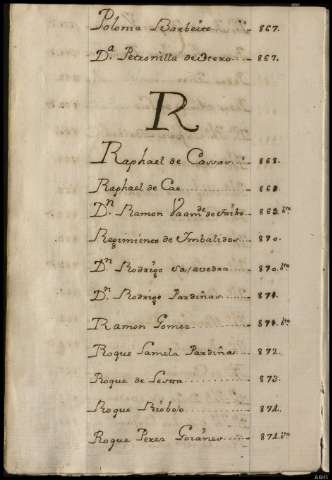 Paloma Barbeito 867.
Dª Petronilla de Otero 867.
R
Raphael de Cassas 868.
Raphael de Cao 868
Dⁿ Ramon 868. bto
Regimiento de Imbalidos 870.
Dⁿ Rodrigo Saavedra 870. bto
Dⁿ Rodrigo Pardiñas 871.
Ramon Gomez 871. bto
Roque Lamela Pardiña 872.
Roque de 873.
Roque Rioboo 874.
Roque Peres Goianes 874. bto